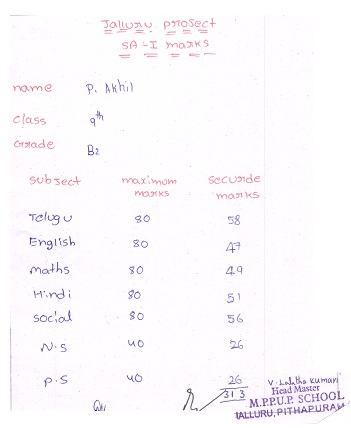 Jalluru project
SA-I marks
name P. Akhil
class 9th
Grade B2
subject maximum marks securde marks
Telugu 80 58
English 80 47
maths 80 49
Hindi 80 51
social 80 56
N.S 40 26
P.S 40 26
313
V. Lalitha kumari
Head Master
M.P.U.P. SCHOOL
JALLURU, PITHAPURAM